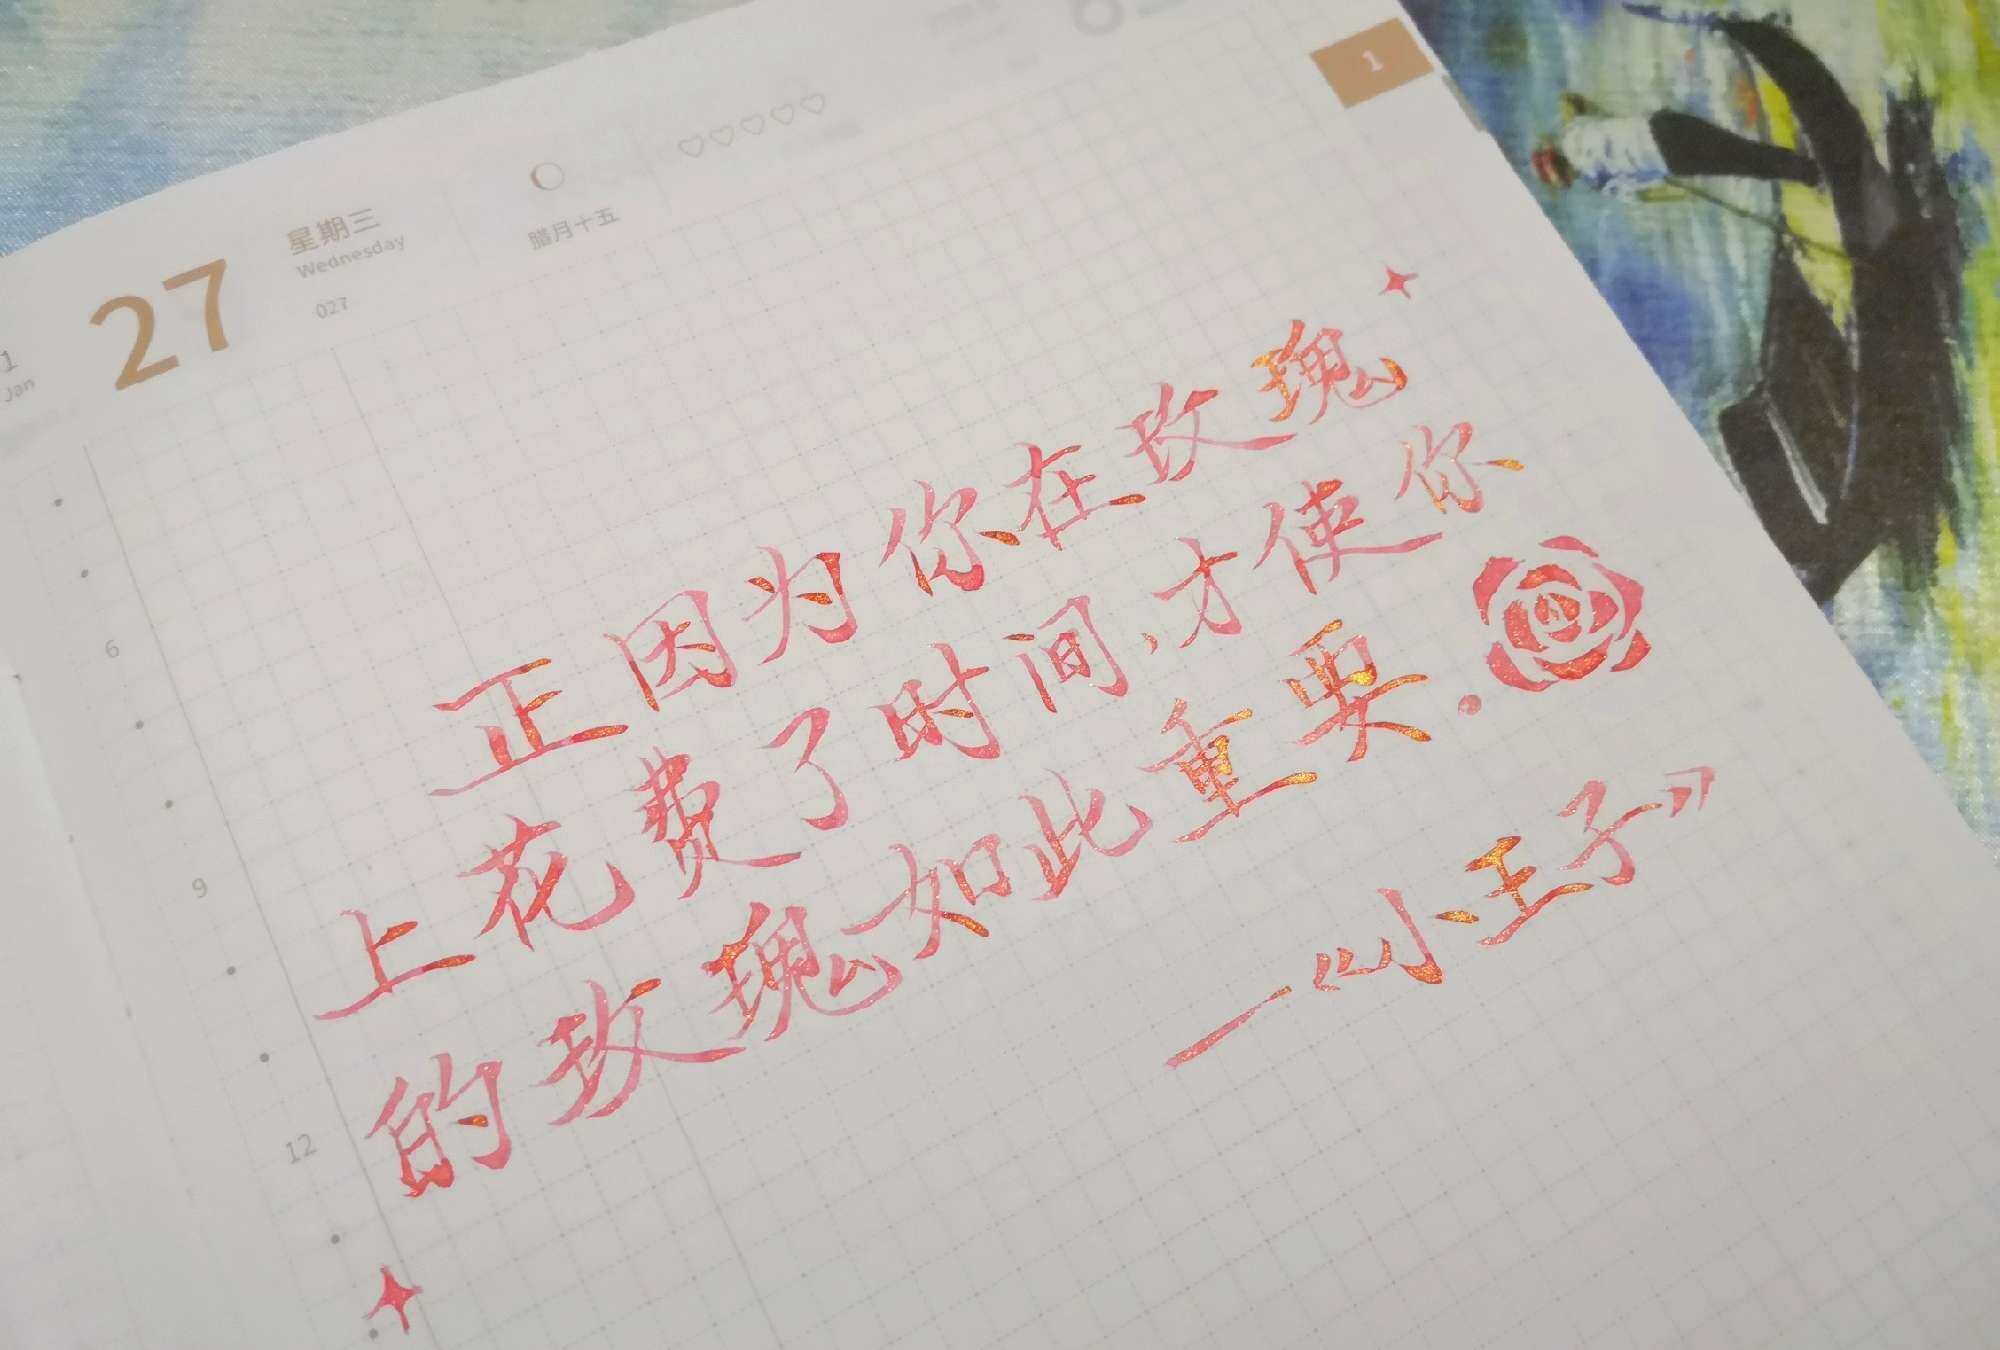 1
Jan
27
星期三
Wednesday
027
腊月十五
1
正因为你在玫瑰
上花费了时间,才使你
的玫瑰如此重要.
—《小王子》
6
9
12